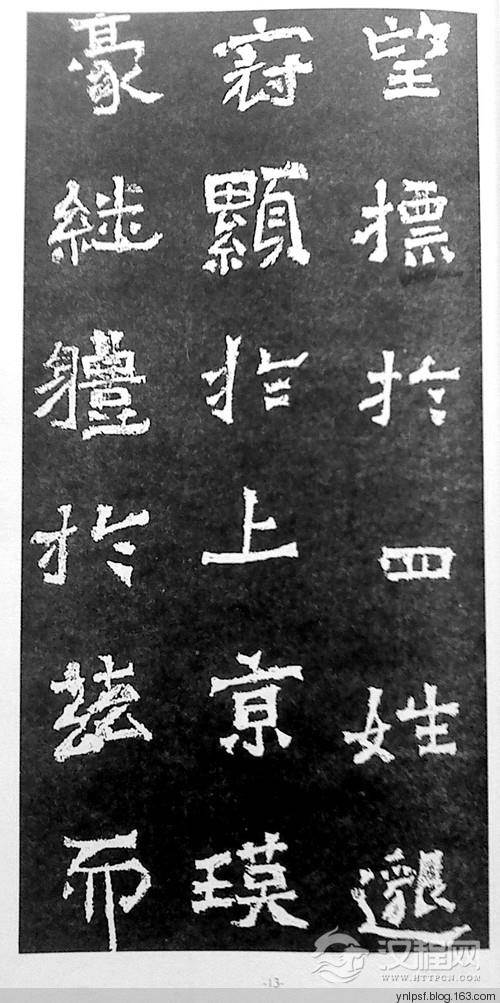 望摽扵四姓邈
冠顯扵上京瑛
豪継軆扵兹而
-13-
汉程网
WWW.HTTPCN.COM
ynlpsf.blog.163.com